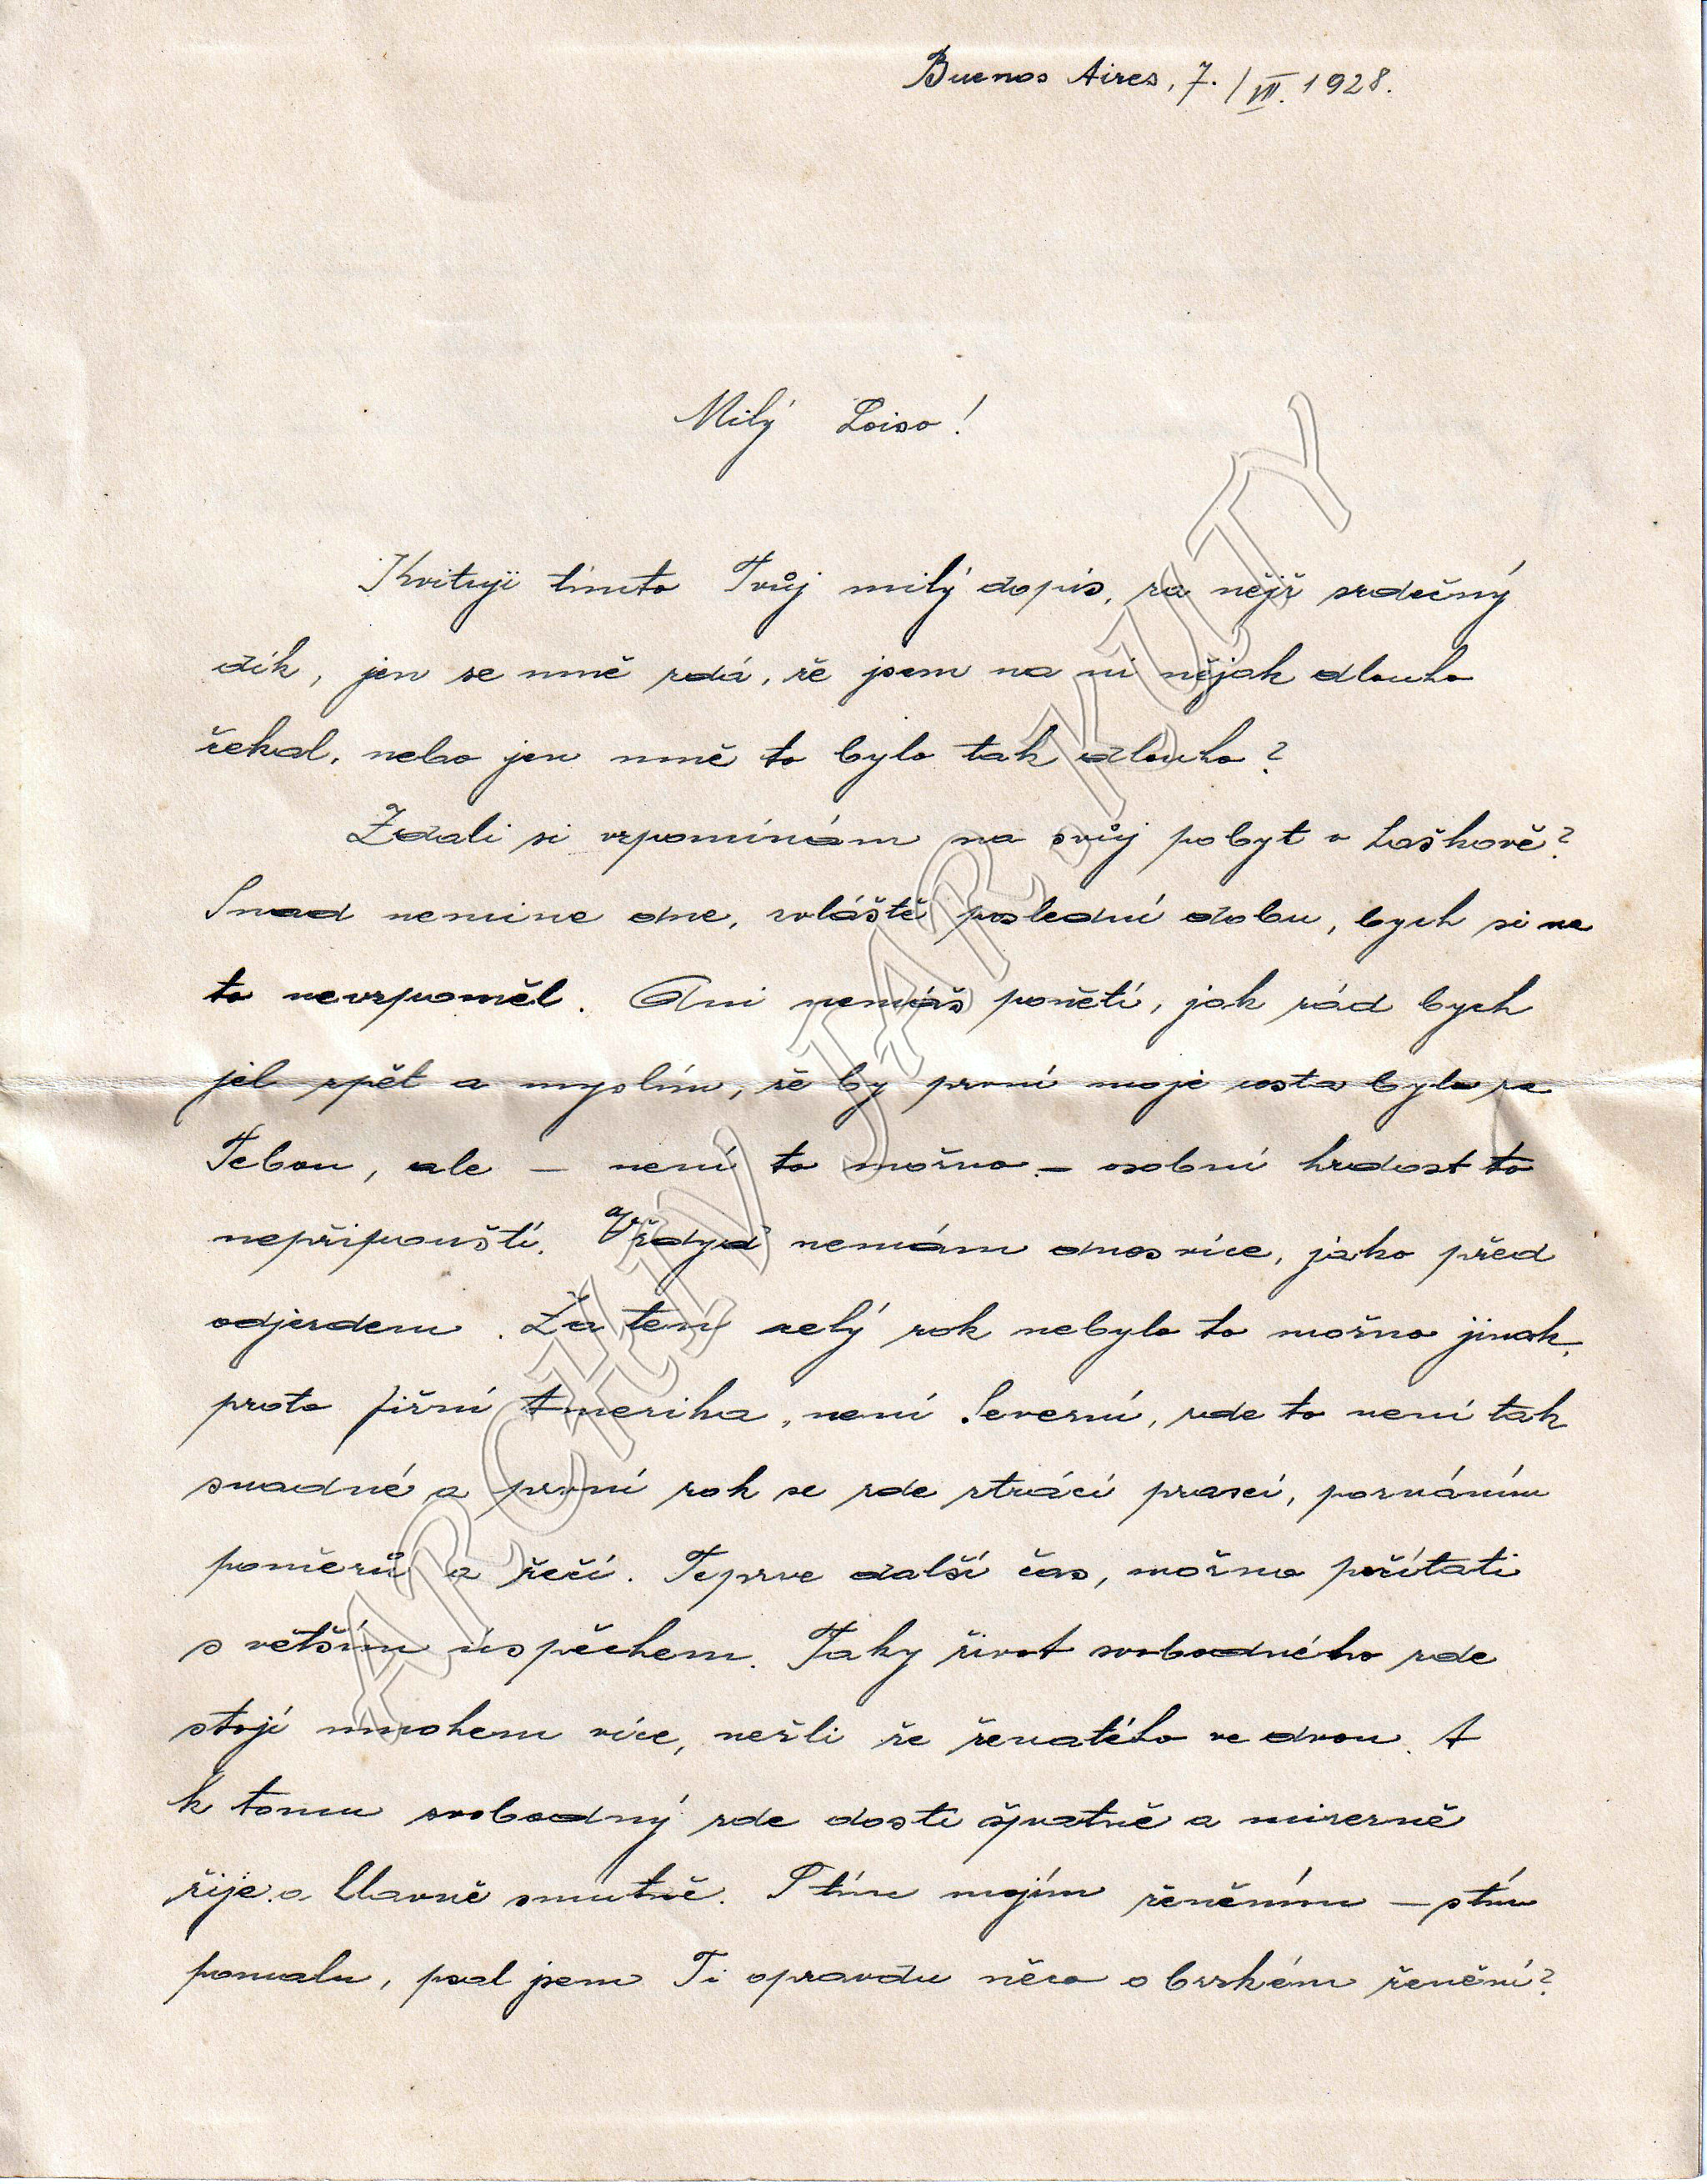 Buenos Aires, 7./VII. 1928.
Milý Loiso!
Kvituji tímto Tvůj milý dopis, za nějž srdečný
dík, jen se mně zdá, že jsem na ni nějak dlouho
čekal, nebo jen mně to bylo tak dlouho?
Zdali si vzpomínám na svůj pobyt v Laškově?
Snad nemine dne, zvláště poslední dobu, bych si na
to nevzpoměl. Ani nemáš ponětí, jak rád bych
jel zpět a myslím, že by první moje cesta byla za
Tebou, ale – není to možno – osobní hrdost to
nepřipouští. a Vždyď nemám dnes více, jako před
odjezdem. Za ten celý rok nebylo to možno jinak,
proto Jižní Amerika, není Severní, zde to není tak
snadné a první rok se zde ztrácí prací, poznáním
poměrů a řečí. Teprve další čas, možno počítati
s větším úspěchem. Taky život svobodného zde
stojí mnohem více, nežli že ženatého ve dvou. A
k tomu svobodný zde dosti špatně a mizerně
žije a hlavně smutně. S tím mojím ženěním – stím
pomalu, psal jsem Ti opravdu něco o brzkém ženění?
ARCHIV JAR. KUTY